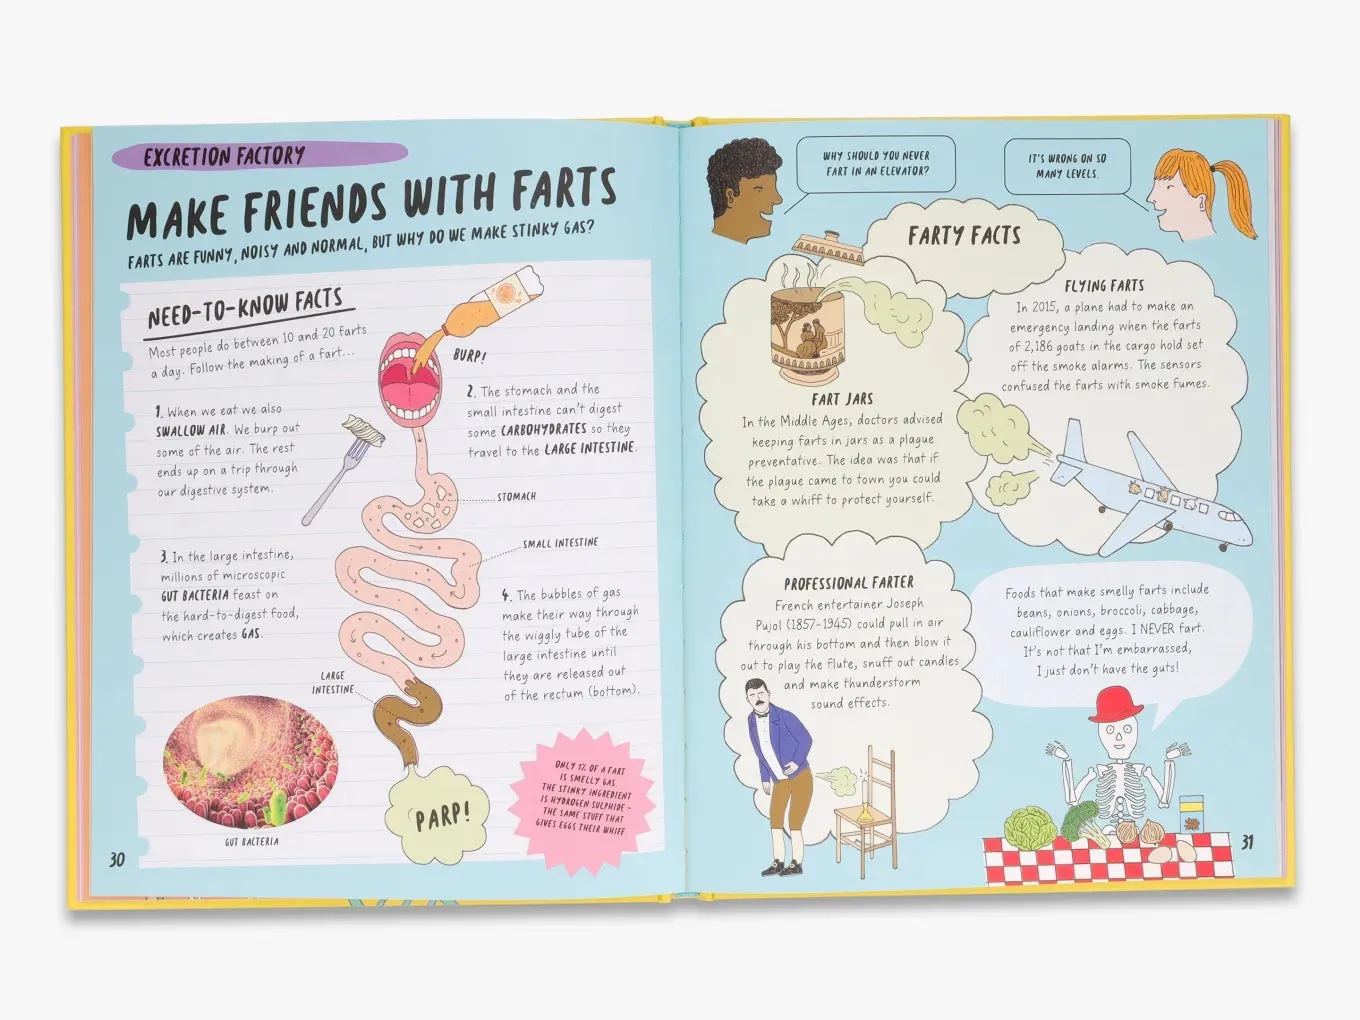 EXCRETION FACTORY
MAKE FRIENDS WITH FARTS
FARTS ARE FUNNY, NOISY AND NORMAL, BUT WHY DO WE MAKE STINKY GAS?
NEED-TO-KNOW FACTS
Most people do between 10 and 20 farts
a day. Follow the making of a fart...
BURP!
1. When we eat we also
SWALLOW AIR. We burp out
some of the air. The rest
ends up on a trip through
our digestive system.
2. The stomach and the
small intestine can't digest
some CARBOHYDRATES so they
travel to the LARGE INTESTINE.
STOMACH
SMALL INTESTINE
3. In the large intestine,
millions of microscopic
GUT BACTERIA feast on
the hard-to-digest food,
which creates GAS.
4. The bubbles of gas
make their way through
the wiggly tube of the
large intestine until
they are released out
of the rectum (bottom).
LARGE
INTESTINE
GUT BACTERIA
PARP!
ONLY 1% OF A FART
IS SMELLY GAS
THE STINKY INGREDIENT
IS HYDROGEN SULPHIDE -
THE SAME STUFF THAT
GIVES EGGS THEIR WHIFF
30
WHY SHOULD YOU NEVER
FART IN AN ELEVATOR?
IT'S WRONG ON SO
MANY LEVELS.
FARTY FACTS
FART JARS
In the Middle Ages, doctors advised
keeping farts in jars as a plague
preventative. The idea was that if
the plague came to town you could
take a whiff to protect yourself.
FLYING FARTS
In 2015, a plane had to make an
emergency landing when the farts
of 2,186 goats in the cargo hold set
off the smoke alarms. The sensors
confused the farts with smoke fumes.
PROFESSIONAL FARTER
French entertainer Joseph
Pujol (1857-1945) could pull in air
through his bottom and then blow it
out to play the flute, snuff out candles
and make thunderstorm
sound effects.
Foods that make smelly farts include
beans, onions, broccoli, cabbage,
cauliflower and eggs. I NEVER fart.
It's not that I'm embarrassed,
I just don't have the guts!
31